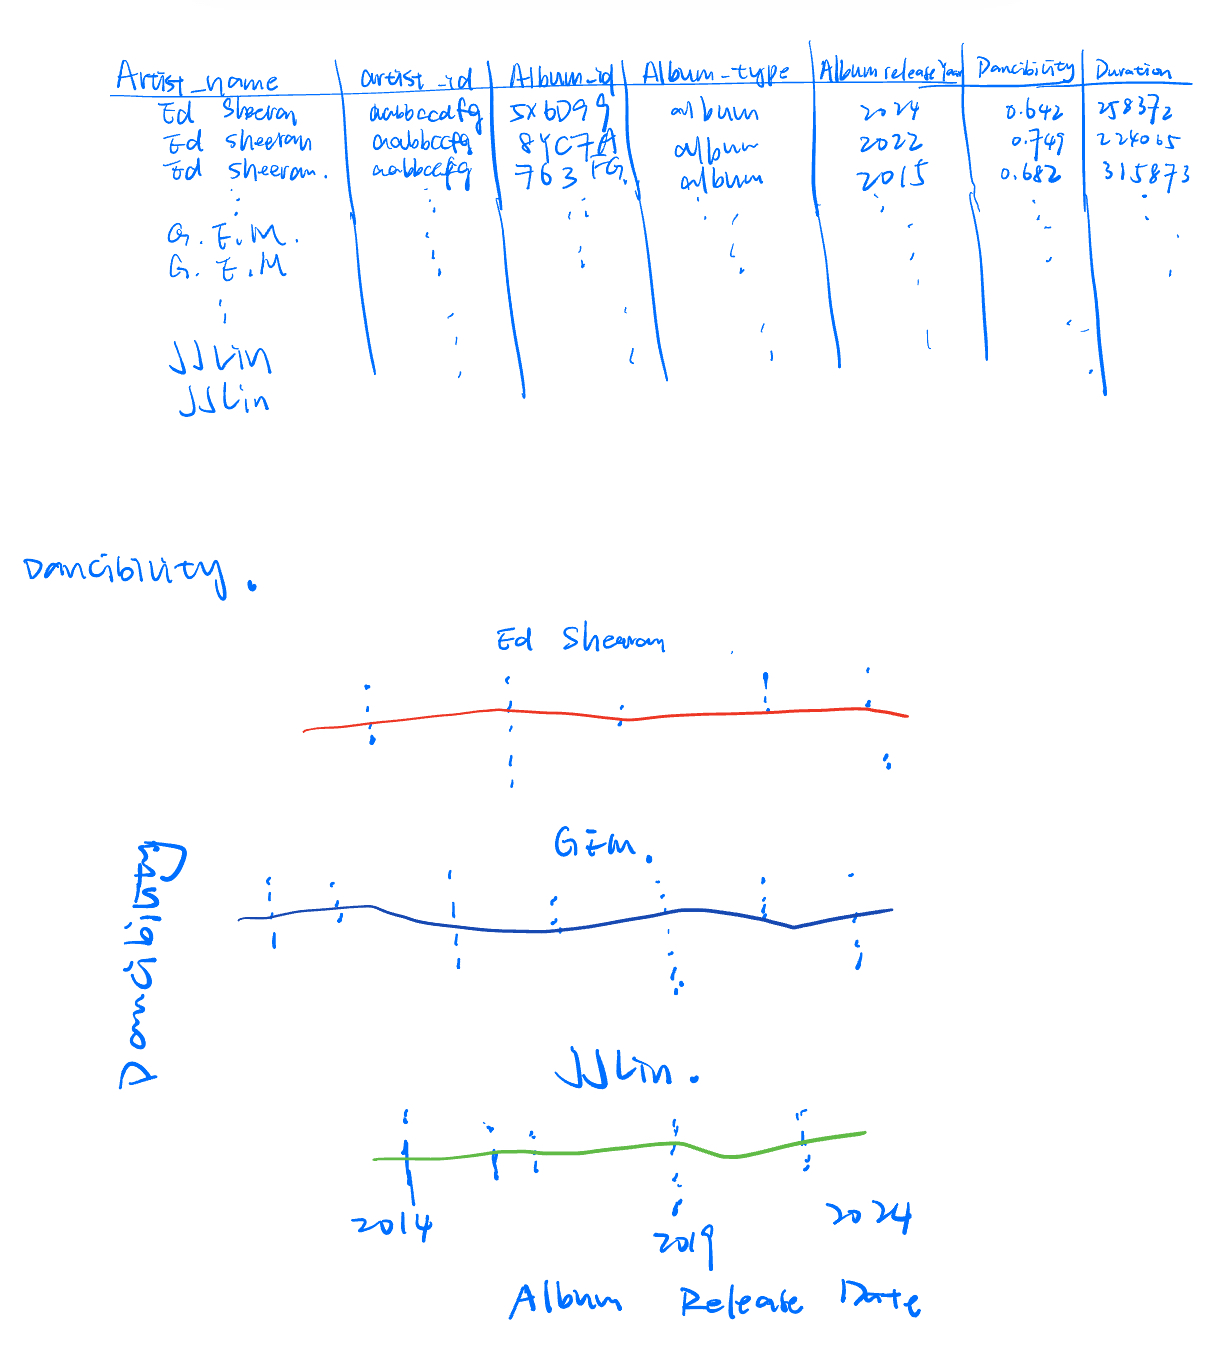 Artist_name artist_id Album_id Album_type Album release Year Dancibility Duration
Ed Sheeran aabbccdfg 5X6D99 album 2024 0.642 258372
Ed sheeran aabbccfg 8YC7A album 2022 0.749 224065
Ed sheeran. aabbccfg 763FG. album 2015 0.682 315873
G.E.M.
G.E.M
JJLin
JJLin
Dancibility.
Ed Shearan
GEM.
Dancibility
JJLin.
2014 2019 2024
Album Release Date